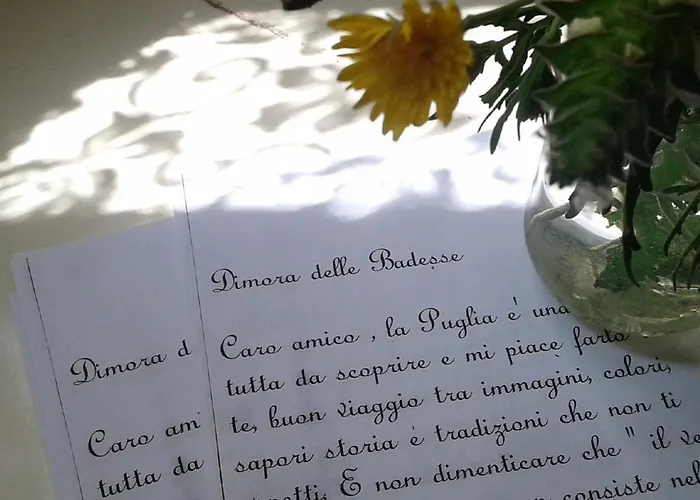 Dimora delle Badesse
Caro amico , la Puglia e' una
tutta da scoprire e mi piace farto
te, buon viaggio tra immagini, colori,
sapori storia e tradizioni che non ti
E non dimenticare che " il
consiste
Dimora d
Caro am
tutta da